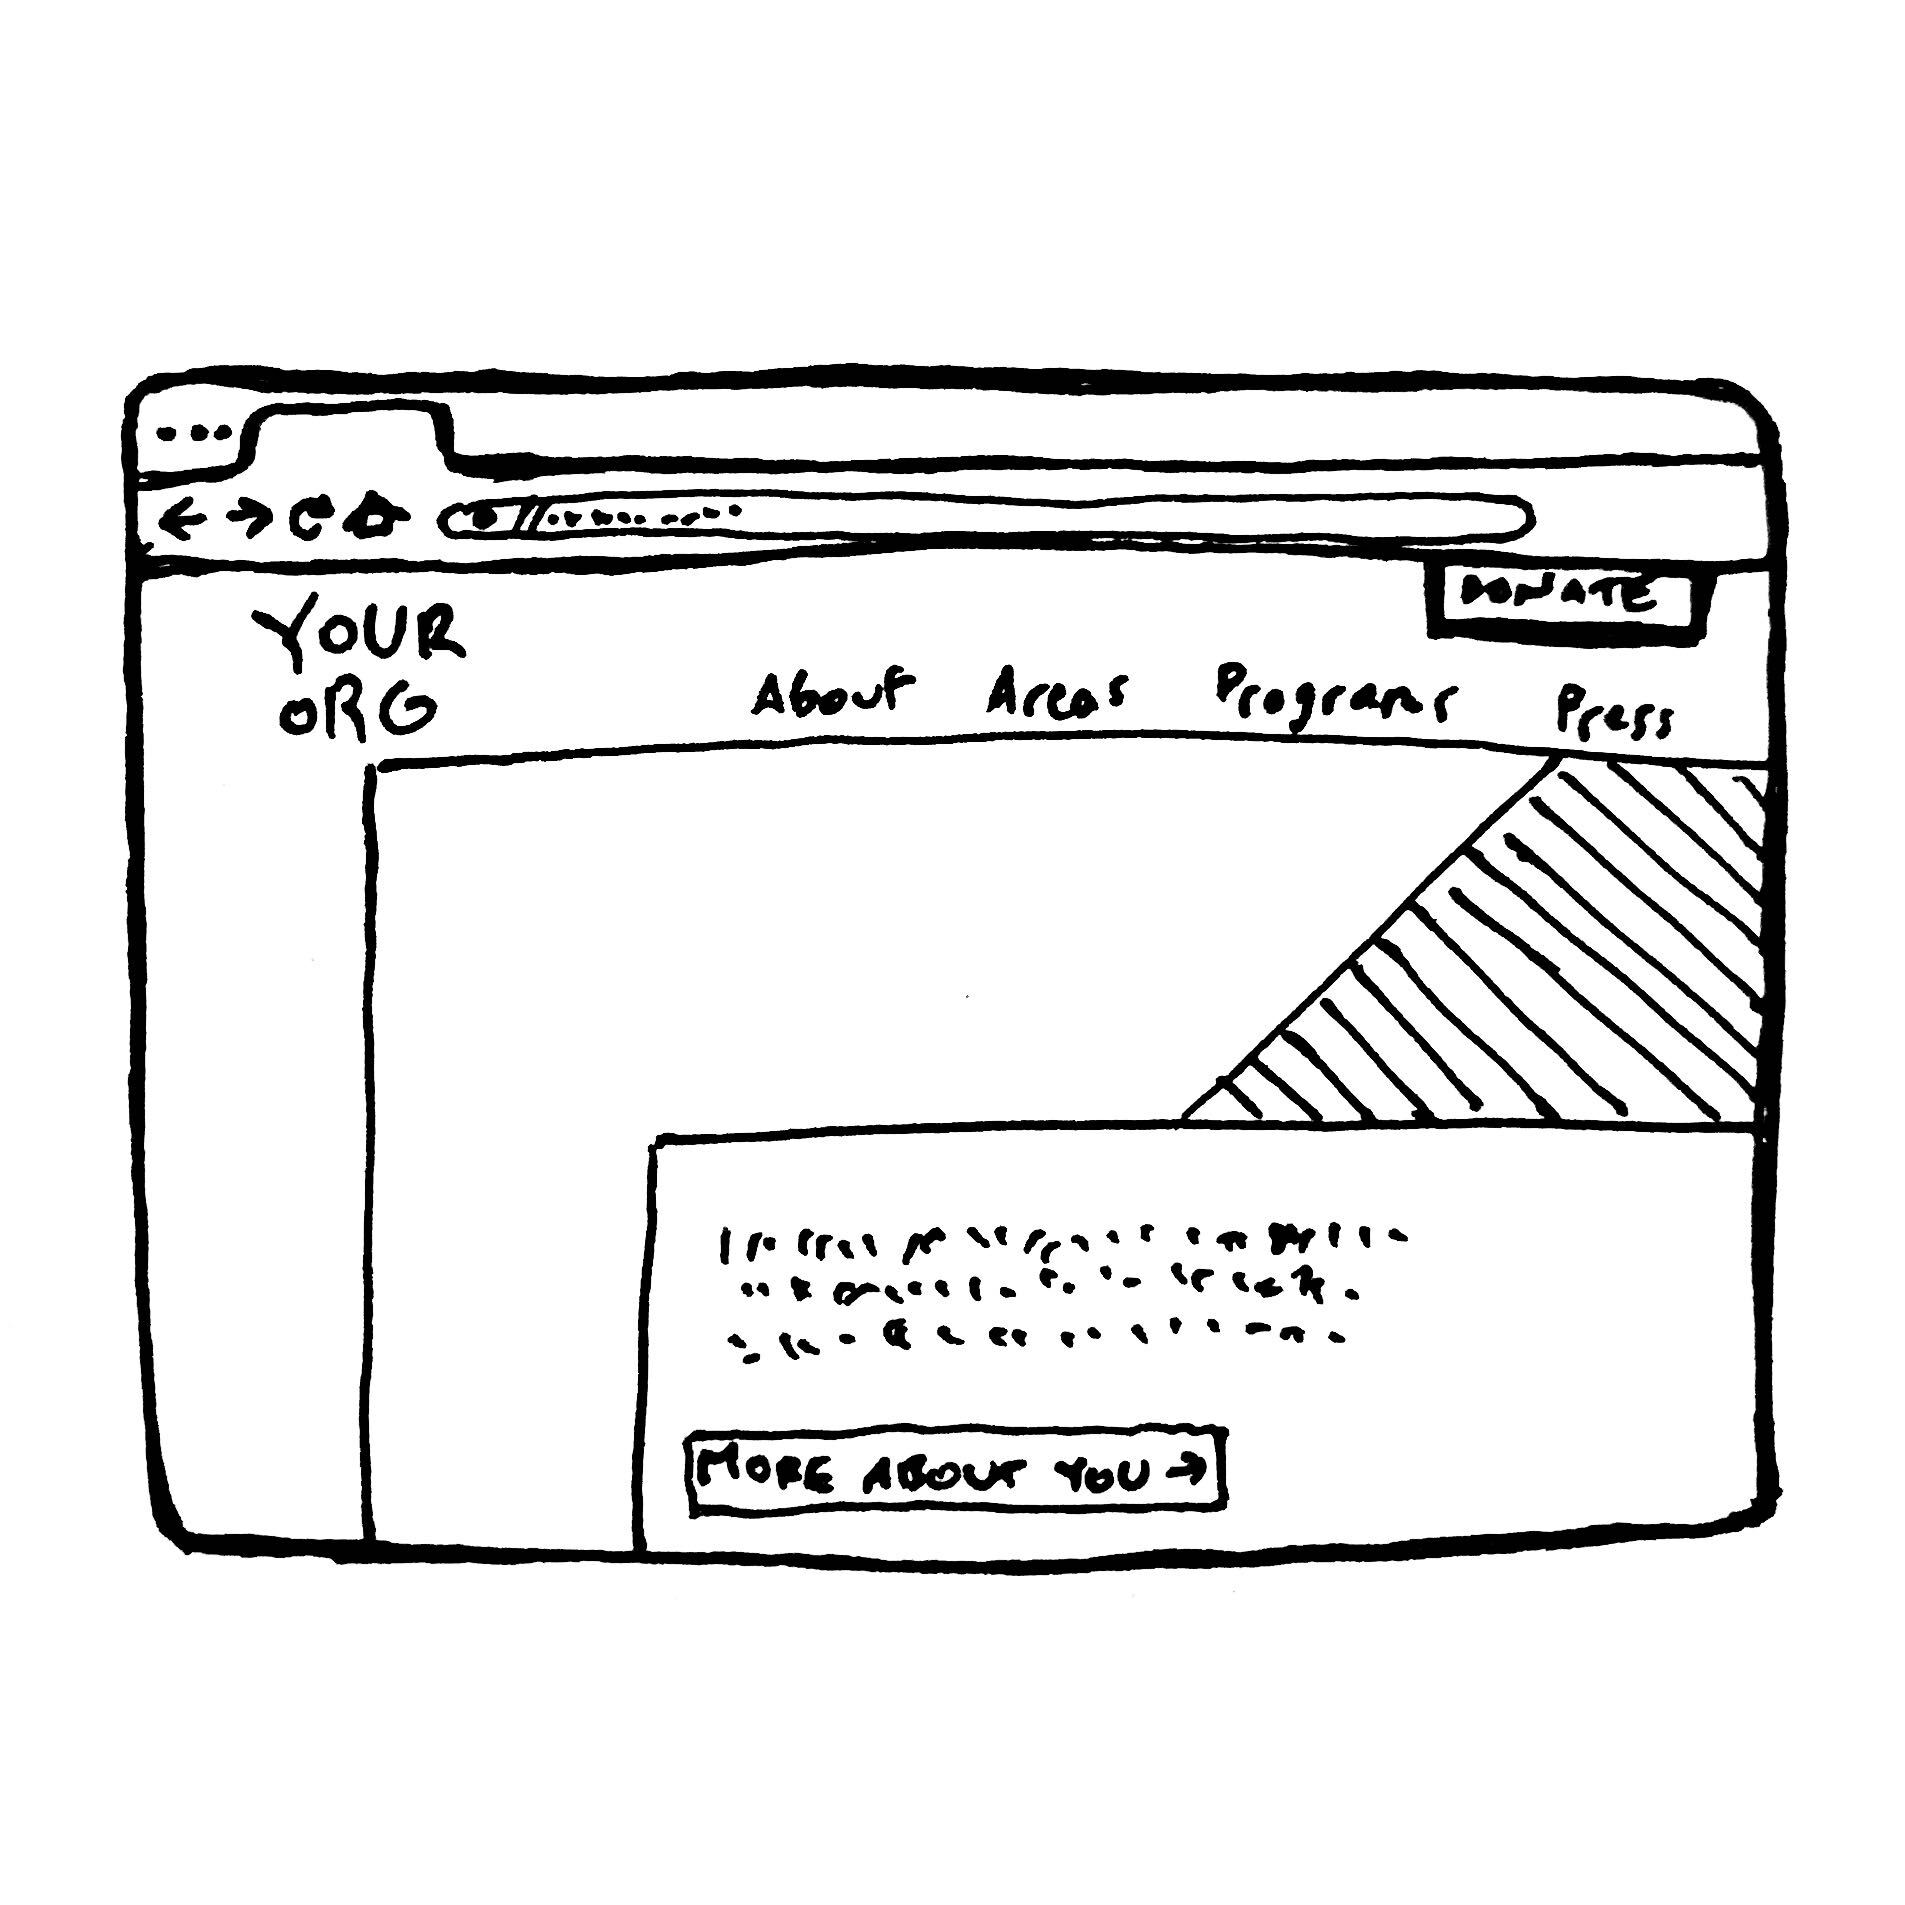 DONATE
YOUR
ORG
About Areas Programs Press
MORE ABOUT YOU →